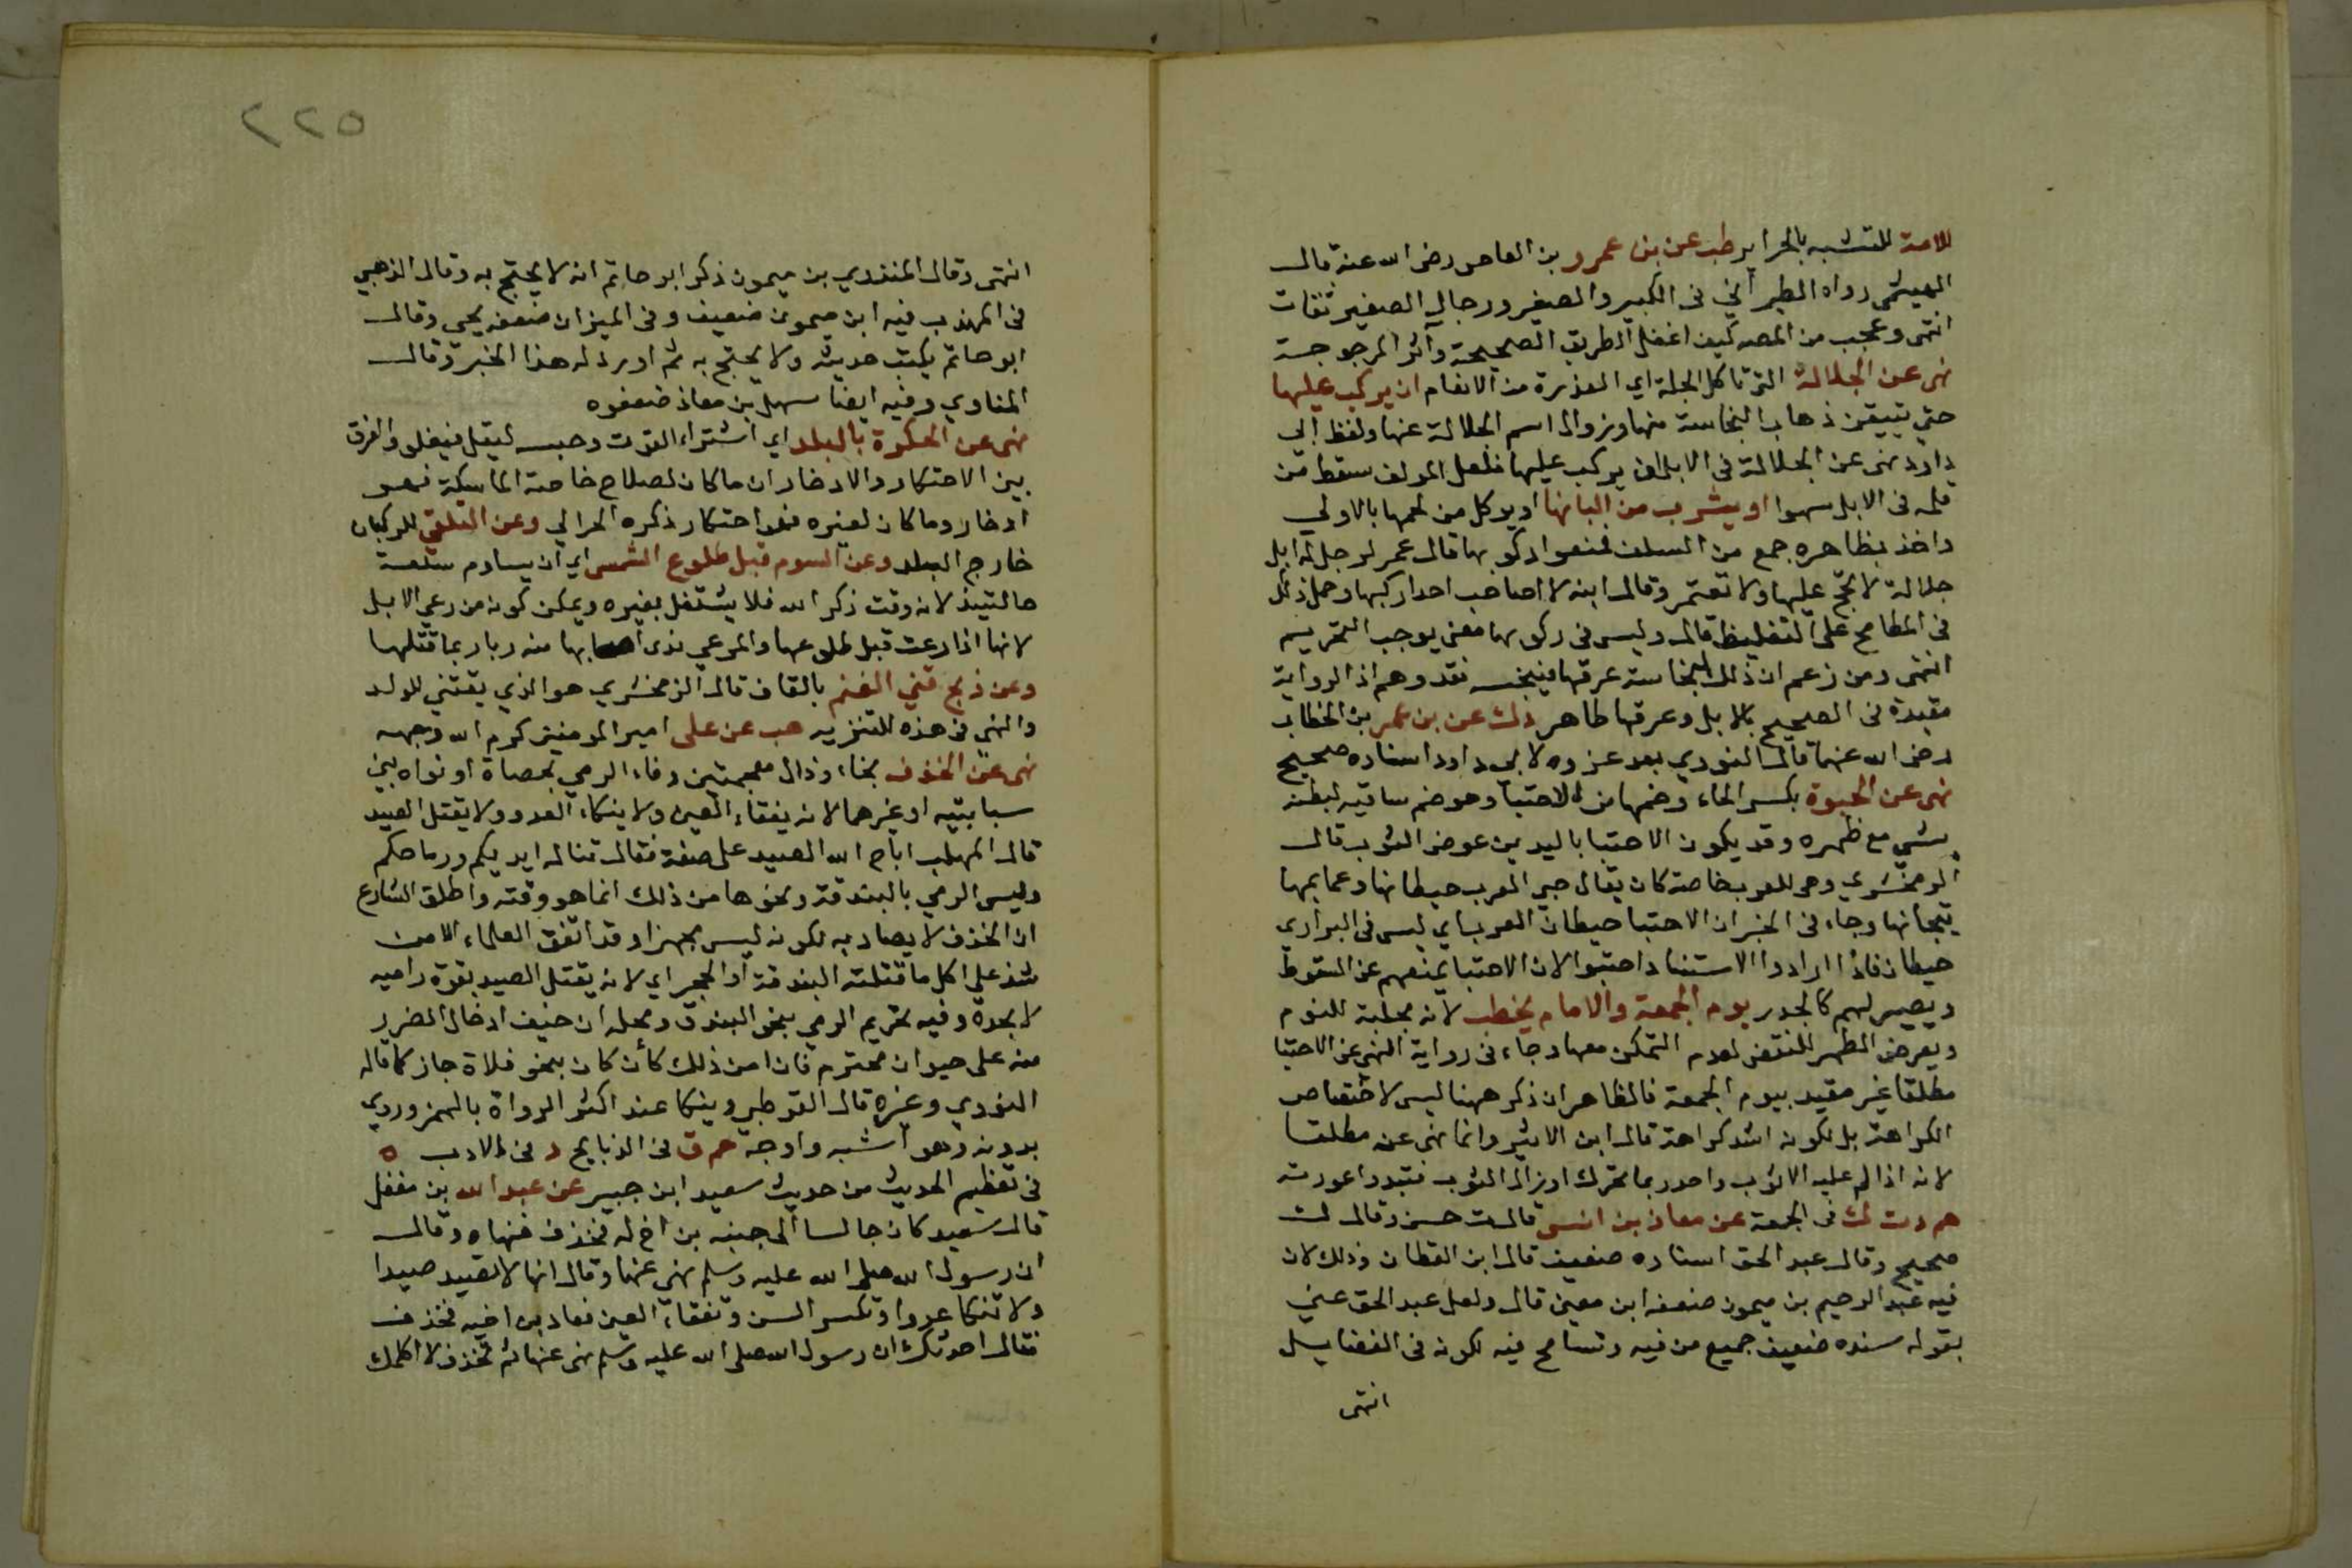 للامة للتشبه بالحراير طب عن بن عمرو بن العاص رضى الله عنه قال
الهيثمى رواه الطبراني فى الكبير والصغير ورجال الصغير ثقات
انتهى وعجب من المصه كيف اغفل الطريق الصحيحة وآثر المرجوحة
نهى عن الجلالة التى تاكل الجلة اي العذرة من الانعام ان يركب عليها
حتي يتيقن ذهاب النجاسة منها وزوال اسم الجلالة عنها ولفظ ابى
داود نهى عن الجلالة فى الابل ان يركب عليها فلعل المولف سقط من
قلمه فى الابل سهوا او يشرب من البانها او يوكل من لحمها بالاولي
واخذ بظاهره جمع من السلف فمنعوا ركوبها قال عمر لرجل له ابل
جلالة لا تحج عليها ولا تعتمر وقال ابنه لا اصاحب احدا ركبها وحمل ذلك
فى المطامح على التغليظ قال وليس فى ركوبها معنى يوجب التحريم
انتهى ومن زعم ان ذلك لنجاسة عرقها فينجسه فقد وهم اذ الرواية
مقيدة فى الصحيح بالابل وعرقها طاهر دك عن بن عمر بن الخطاب
رضى الله عنهما قال النووي بعد عزوه لابى داود اسناده صحيح
نهى عن الحبوة بكسر الحاء وضمها من الاحتبا وهو ضم ساقيه لبطنه
بشي مع ظهره وقد يكون الاحتبا باليدين عوض الثوب قال
الزمخشري وهى للعرب خاصة كان يقال حبى العرب حيطانها وعمايمها
تيجانها وجاء فى الخبر ان الاحتبا حيطان العرب اي ليس فى البراري
حيطان فاذا ارادوا الاستناد احتبوا لان الاحتبا يمنعهم عن السقوط
ويصير لهم كالجدر يوم الجمعة والامام يخطب لانه مجلبة للنوم
ويعرض الطهر للنقض لعدم التمكن معها وجاء فى رواية النهى عن الاحتبا
مطلقا غير مقيد بيوم الجمعة فالظاهر ان ذكر ههنا ليس لاختصاص
الكراهة بل لكونه اشد كراهة قال ابن الاثير وانما نهى عنه مطلقا
لانه اذا لم عليه الا ثوب واحد ربما تحرك او زال الثوب فتبدوا عورته
حم دت ك فى الجمعة عن معاذ بن انس قال ت حسن وقال ك
صحيح وقال عبد الحق اسناده ضعيف قال ابن القطان وذلك لان
فيه عبد الرحيم بن ميمون ضعفه ابن معين قال ولعل عبد الحق عنى
بقوله سنده ضعيف جميع من فيه وتسامح فيه لكونه فى الفضايل
انتهى
٢٢٥
انتهى وقال المنذري بن ميمون ذكر ابو حاتم انه لا يحتج به وقال الذهبي
فى المهذب فيه ابن ميمون ضعيف وفى الميزان ضعفه يحي وقال
ابو حاتم يكتب حديثه ولا يحتج به ثم اورد له هذا الخبر وقال
المناوي وفيه ايضا سهل بن معاذ ضعفوه
نهى عن الحكرة بالبلد اي اشتراء القوت وحبسه ليقل فيغلى والفرق
بين الاحتكار والادخار ان ما كان لصلاح خاصة الماسكة فهو
ادخار وما كان لغيره فهو احتكار ذكره الحرالي وعن التلقي للركبان
خارج البلد وعن السوم قبل طلوع الشمس اي ان يساوم سلعة
حالتيذ لانه وقت ذكر الله فلا يشتغل بغيره ويمكن كونه من رعي الابل
لانها اذا رعت قبل طلوعها والمرعي ندى اصابها منه ربا ربما قتلها
وعن ذبح قني الغنم بالقاف قال الزمخشري هو الذي يقتني للولد
والنهى فى هذه للتنزيه هب عن على امير المومنين كرم الله وجهه
نهى عن الخذف بخاء وذال معجمتين وفاء الرمي بحصاة او نواه بين
سبابتيه او غيرهما لانه يفقاء العين ولا ينكاء العدو ولا يقتل الصيد
قال المهلب اباح الله الصيد على صفة فقال تناله ايديكم ورماحكم
وليس الرمي بالبندقة ونحوها من ذلك انما هو وقته واطلق الشارع
ان الخذف لا يصاد به لكونه ليس مجهزا وقد اتفق العلماء الا من
شذ علي اكل ما قتلته البندقة او الحجر اي لانه يقتل الصيد بقوة راميه
لا بحده وفيه تحريم الرمي بنحو البندق ومحله ان خيف ادخال الضرر
منه على حيوان محترم فان امن ذلك كأن كان بنحو فلاة جاز كما قاله
النووي وغيره قال القرطبي وينكا عند اكثر الرواة بالهمز وروي
بدونه وهو اشبه واوجه حم ق فى الذبايح د فى الادب ه
فى تعظيم الحديث من حديث سعيد ابن جبير عن عبد الله بن مغفل
قال سعيد كان جالسا الى جنبه بن اخ له فخذف فنهاه وقال
ان رسول الله صلى الله عليه وسلم نهى عنها وقال انها لا تصيد صيدا
ولا تنكا عدوا وتكسر السن وتفقاء العين فعاد بن اخيه فخذف
فقال احدثك ان رسول الله صلى الله عليه وسلم نهى عنها ثم تخذف لا اكلمك